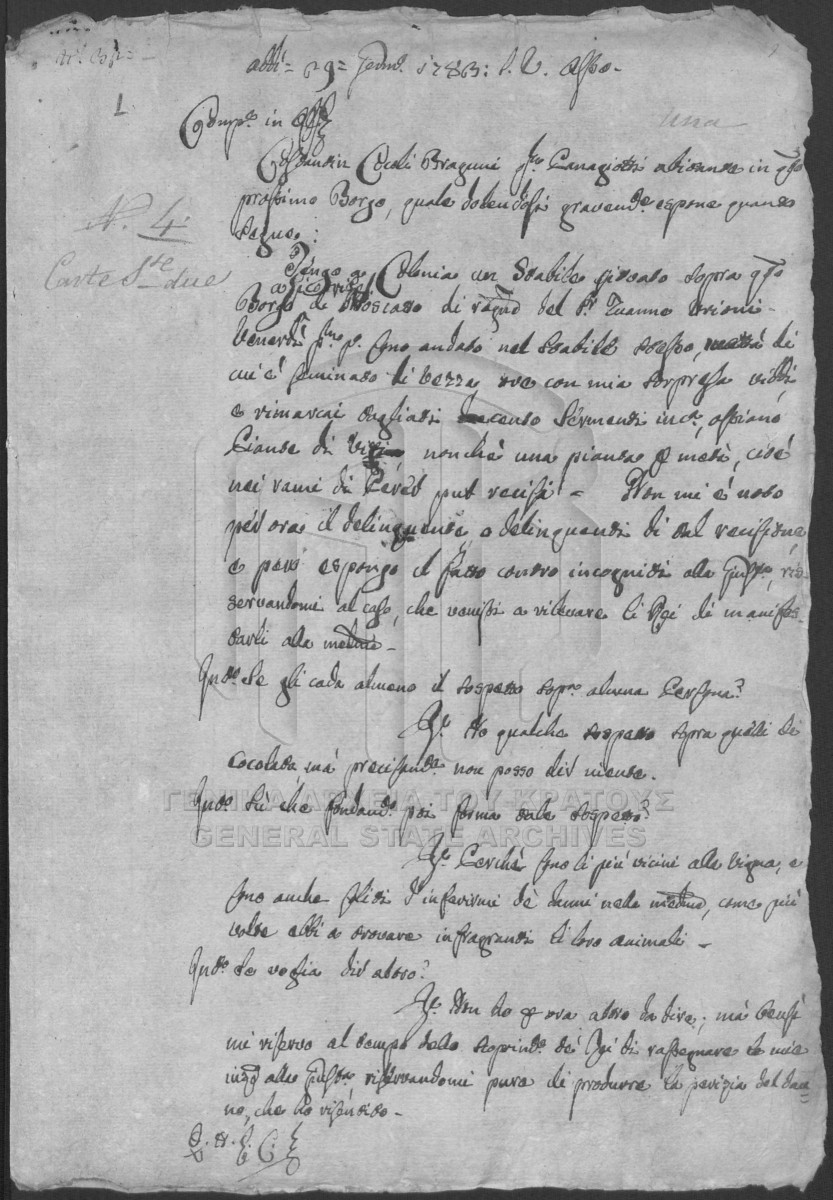 adi 29 Genn.o 1783: S. V. Asso.
1.
Comp.e in Off.o
una
Costantin Cocoli Bragumi q.m Panagiotti abitante in q.sto
prossimo Borgo, quale dolendosi gravem.e espone quanto
segue:
N. 4
Carte S.te due
Tengo a Colonia un Stabile situato sopra q.sto
Borgo di Moscatto di rag.ne del S.r Zuanne
Venerdì p.mo p. sono andato nel Stabile stesso, metà di
cui è seminato di bizza, ove con mia sorpresa viddi,
e rimarcai tagliati cento Sermenti in c.a, ossiano
Piante di viti nonchè una pianta p metà, cioè
nei rami di Perer pur recisi - Non mi è noto
per ora il delinquente, o delinquenti di tal recisione,
e però espongo il fatto contro incogniti alla Giust.a, ri-
servandomi al caso, che venissi a rilevare li Rei di manifes-
tarli alla med.ma -
Int.o Se gli cada almeno il sospetto sop.a alcuna Persona?
R.e Ho qualche sospetto sopra quelli di
Cocolada, mà precisam.te non posso dir niente.
Int.o Sù che fondam.to poi forma tale sospetto?
R.e Perchè sono li più vicini alla vigna, e
sono anche soliti d'inferirmi de danni nella med.ma, come più
volte ebbi a trovare in fragranti li loro animali -
Int.o Se voglia dir altro?
R.e Non ho p ora altro da dire; mà bensì
mi riservo al tempo dello scoprim.to de Rei di rassegnare le mie
alla Giust.a riservandomi pure di produrre la perizia del dan-
no, che ho risentito -
ΓΕΝΙΚΑ ΑΡΧΕΙΑ ΤΟΥ ΚΡΑΤΟΥΣ
GENERAL STATE ARCHIVES